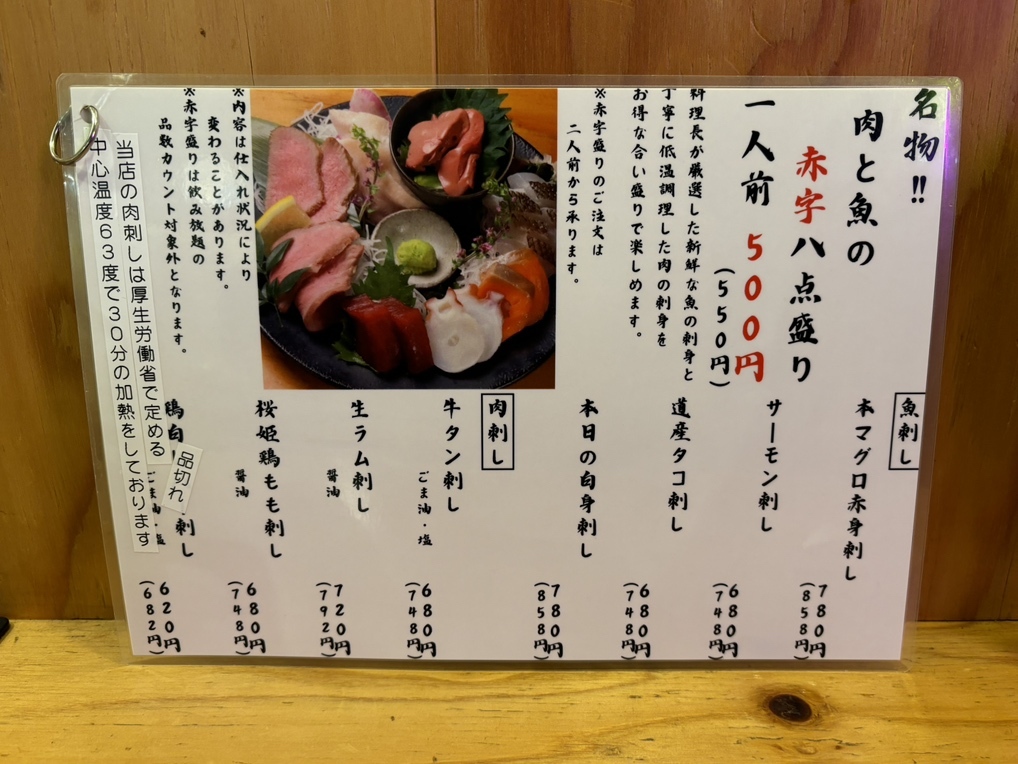 名物!!
肉と魚の
赤字八点盛り
一人前 500円
(550円)
料理長が厳選した新鮮な魚の刺身と
丁寧に低温調理した肉の刺身を
お得な合い盛りで楽しめます。
※赤字盛りのご注文は
二人前から承ります。
※内容は仕入れ状況により
変わることがあります。
※赤字盛りは飲み放題の
品数カウント対象外となります。
魚刺し
本マグロ赤身刺し 780円
(858円)
サーモン刺し 680円
(748円)
道産タコ刺し 680円
(748円)
本日の白身刺し 780円
(858円)
肉刺し
牛タン刺し 680円
ごま油・塩 (748円)
生ラム刺し 720円
醤油 (792円)
桜姫鶏もも刺し 680円
醤油 (748円)
鶏白 刺し 620円
ごま油 塩 (682円)
品切れ
当店の肉刺しは厚生労働省で定める
中心温度63度で30分の加熱をしております